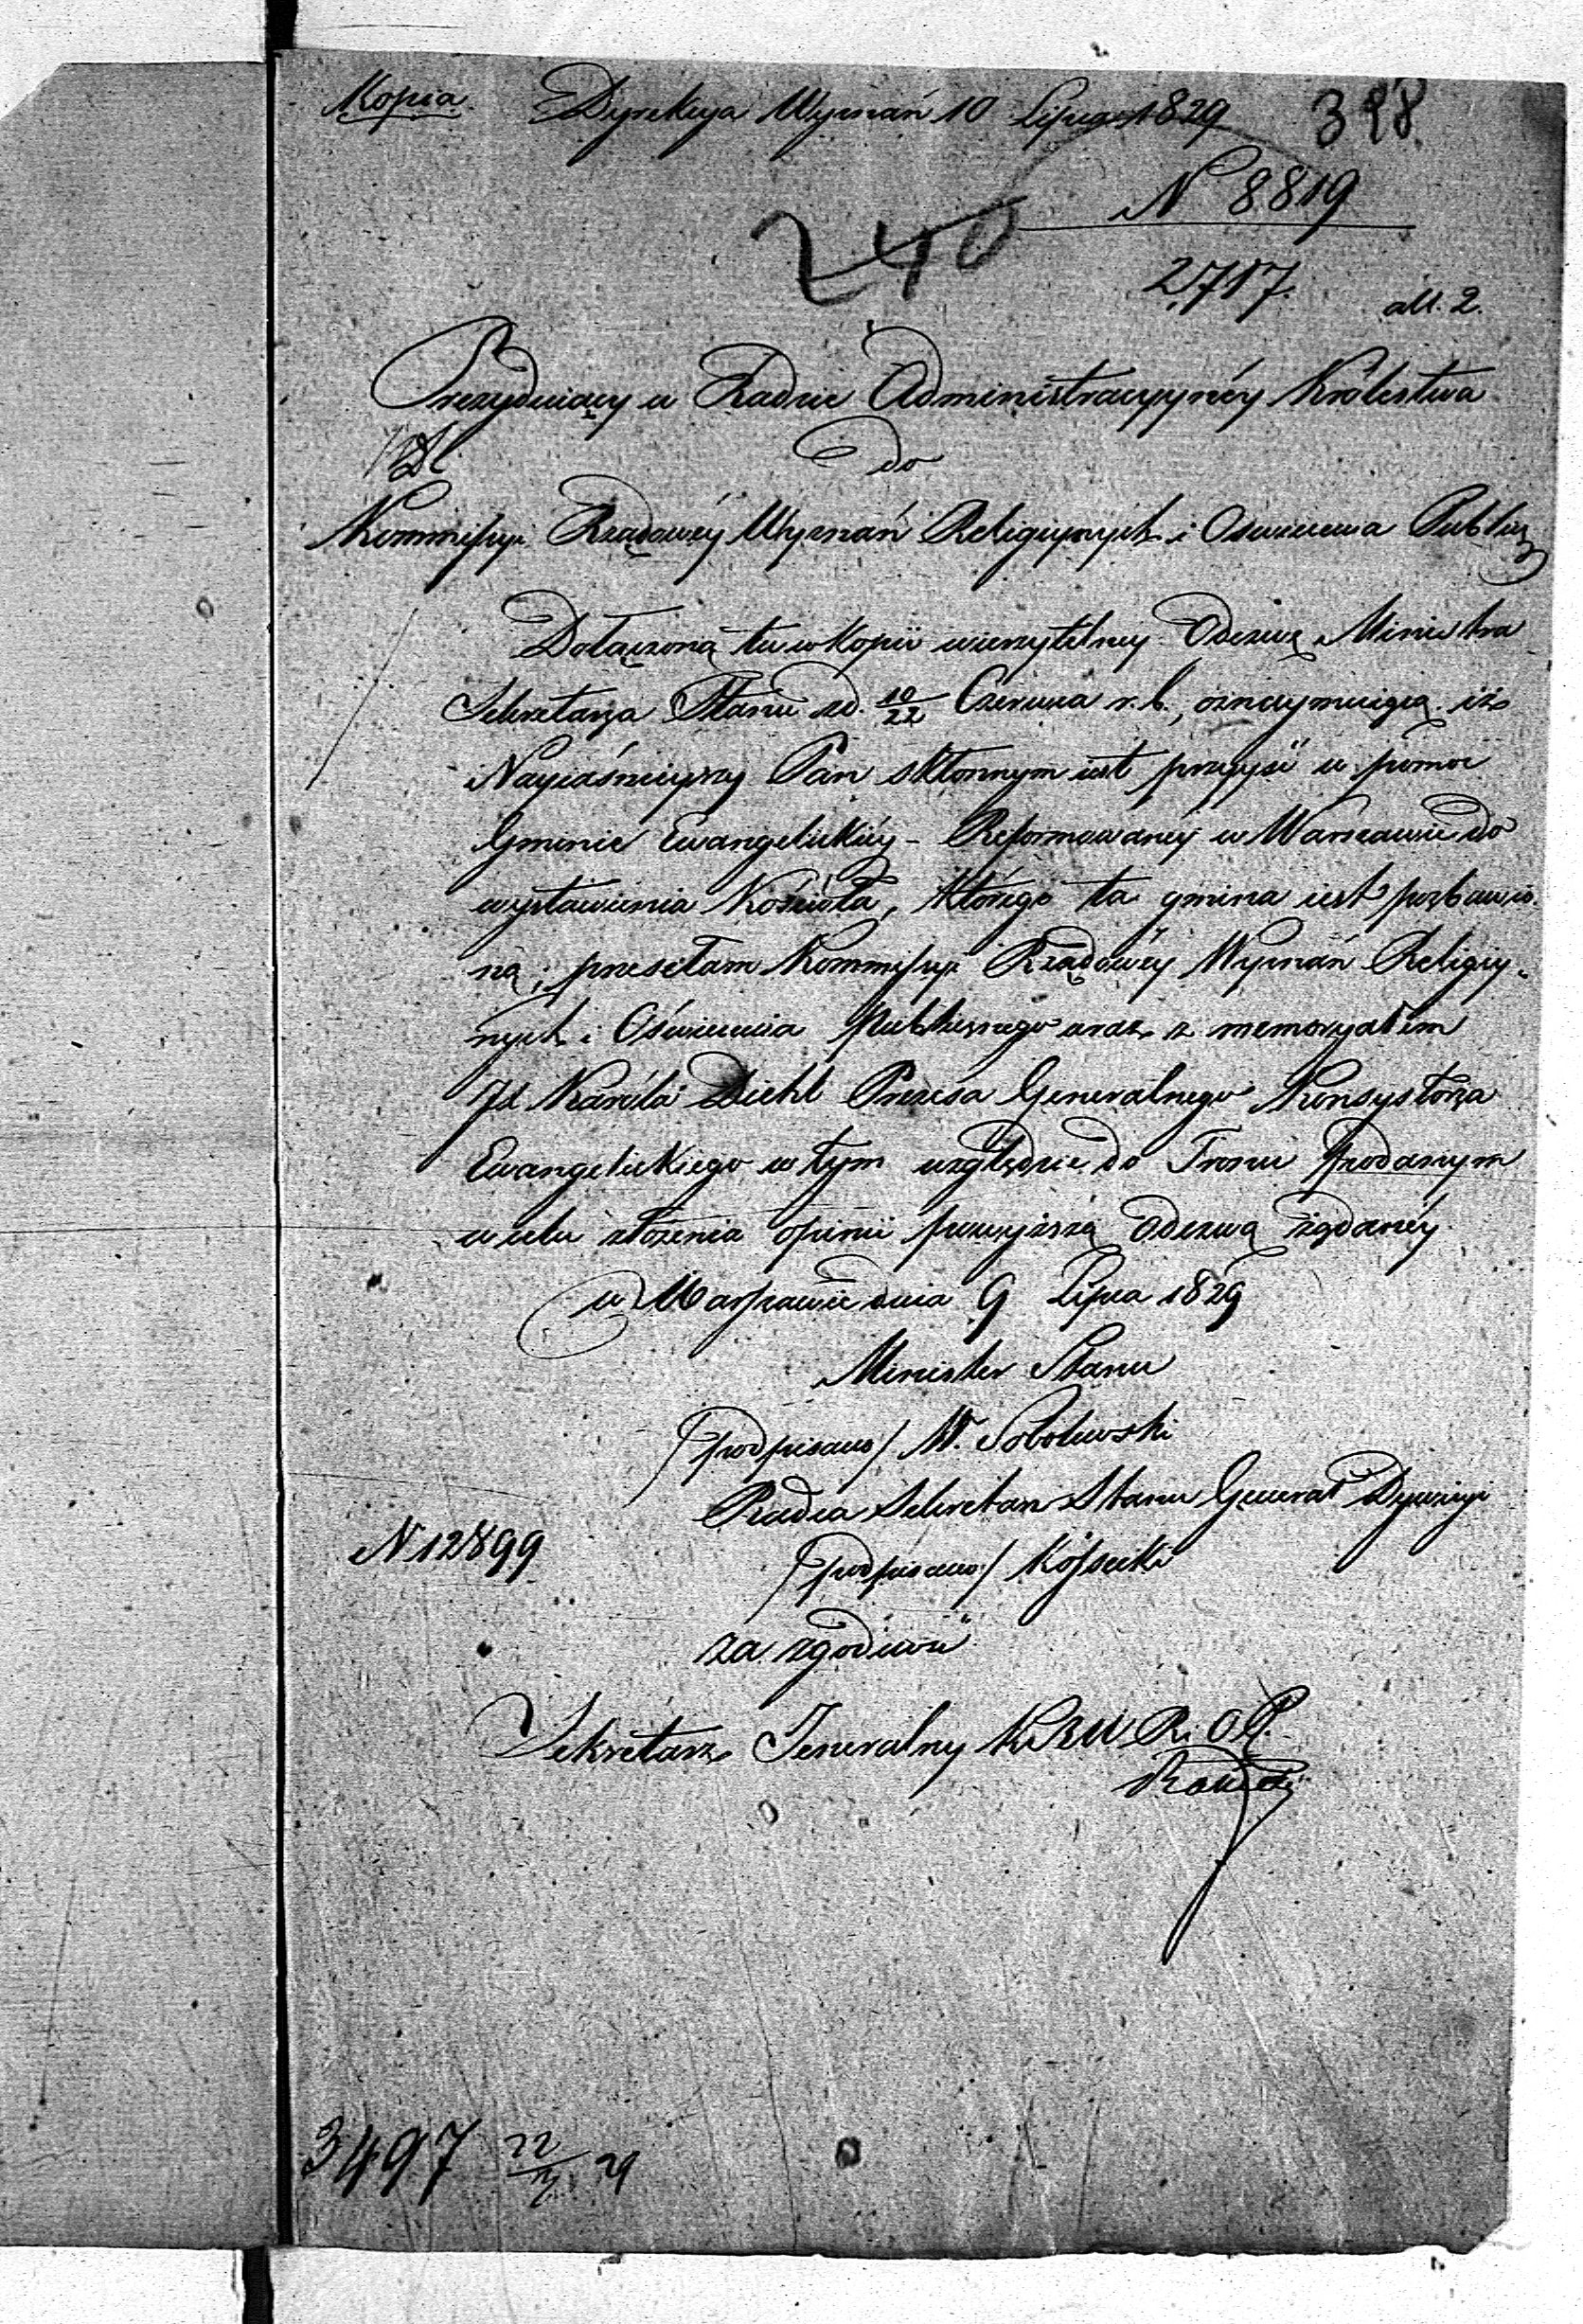 Kopia. Dyrekcya Wyznań 10 Lipca 1829 328.
N 8819
2717.
240
all. 2.
Prezyduiący w Radzie Administracyynéy Królestwa
do
Kommissyi Rządowéy Wyznań Religiynych i Oswiecenia Publicz
Dołączoną tu w Kopii wierzytelney Odezwę Ministra
Sekretarza Stanu z d. 10/22 Czerwca r. b., oznaymuiącą iż
Nayiaśnieyszy Pan skłonnym iest przyyść w pomoc
Gminie Ewangelickiéy - Reformowanéy w Warszawie do
wystawienia Kościoła, którego ta gmina iest pozbawio
ną; przesełam Kommissyi Rządowéy Wyznań Religiy-
nych i Oświecenia Publicznego wraz z memoryałem
JX Karóla Diehl Prezesa Generalnego Konsystorza
Ewangelickiego w tym względzie do Tronu podanym
w celu złożenia opinii powyższą Odezwą żądanéy
w Warszawie dnia 9 Lipca 1829
Minister Stanu
/podpisano/ W. Sobolewski
Radca Sekretarz Stanu Generał Dywizyi
N 12899
/podpisano/ Kossecki
za zgodność
Sekretarz Jeneralny K R W R i O P.
3497 22/ 29